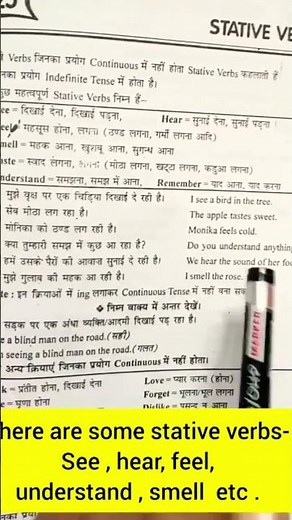 STATIVE VE
Verbs जिनका प्रयोग Continuous में नहीं होता Stative Verbs कहलाती हैं
नका प्रयोग Indefinite Tense में होता है।
कुछ महत्वपूर्ण Stative Verbs निम्न हैं–
ee = दिखाई देना, दिखाई पड़ना, Hear = सुनाई देना, सुनाई पड़ना
eel = महसूस होना, लगना (ठण्ड लगना, गर्मी लगना आदि)
mell = महक आना, खुशबू आना, सुगन्ध आना
aste = स्वाद लगना, लगना (मीठा लगना, खट्टा लगना, कडुआ लगना)
nderstand = समझना, समझ में आना, Remember = याद आना, याद करना
मुझे वृक्ष पर एक चिड़िया दिखाई दे रही है। I see a bird in the tree.
सेब मीठा लग रहा है। The apple tastes sweet.
मोनिका को ठण्ड लग रही है। Monika feels cold.
क्या तुम्हारी समझ में कुछ आ रहा है? Do you understand anything
हमें उसके पैरों को आवाज सुनाई दे रही है। We hear the sound of her foo
मुझे गुलाब की महक आ रही है। I smell the rose.
te : इन क्रियाओं में ing लगाकर Continuous Tense में नहीं बना सक
निम्न वाक्य में अन्तर देखें।
सड़क पर एक अंधा व्यक्ति/आदमी दिखाई पड़ रहा है।
e a blind man on the road. (सही)
seeing a blind man on the road. (गलत)
अन्य क्रियाएं जिनका प्रयोग Continuous में नहीं होता।
k = प्रतीत होना, दिखाई देना Love = प्यार करना (होना)
= घृणा होना Forget = भूलना/भूल लगना
Dislike = पसन्द न आना
here are some stative verbs-
See , hear, feel,
understand , smell etc .